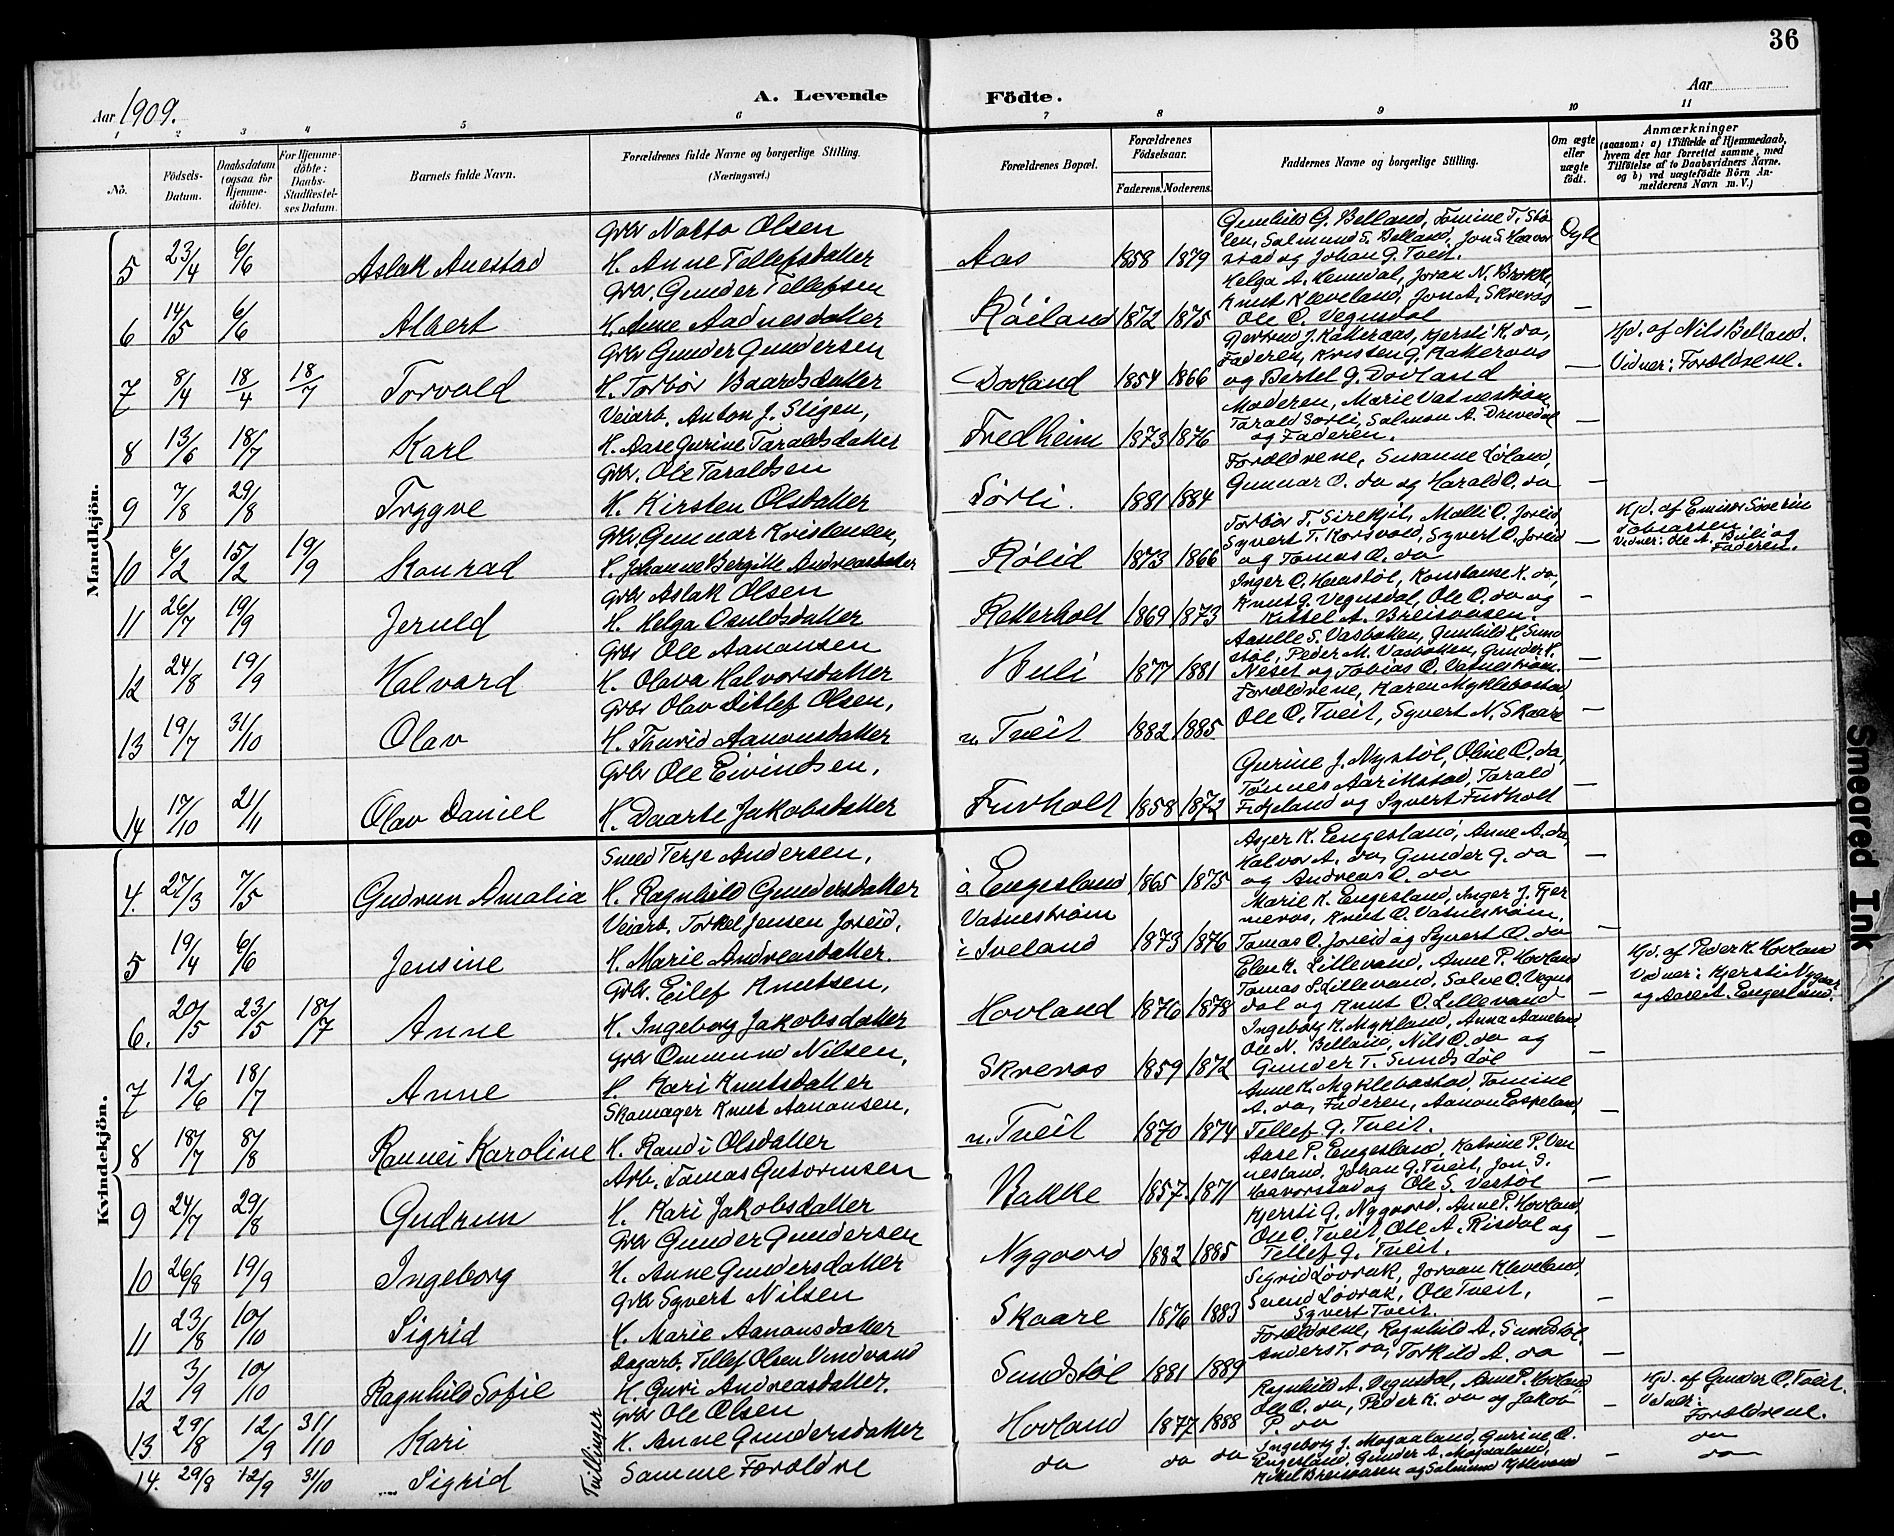 36
Aar 1909.
A. Levende Födte.
Aar
1 2 3 4 5 6 7 8 9 10 11
No.
Födsels-Datum.
Daabsdatum (ogsaa for Hjemmedöbte).
For Hjemmedöbte: Daabs-Stadfestelses Datum.
Barnets fulde Navn.
Forældrenes fulde Navne og borgerlige Stilling. (Næringsvei.)
Forældrenes Bopæl.
Forældrenes Födselsaar.
Faderens. Moderens.
Faddernes Navne og borgerlige Stilling.
Om ægte eller uægte födt.
Anmærkninger
(saasom: a) i Tilfælde af Hjemmedaab, hvem der har forrettet samme, med Tilföielse af to Daabsvidners Navne, og b) ved uægtefödte Börn Anmelderens Navn m. V.)
Mandkjön.
5 23/4 6/6 Aslak Anestad
Grbr Notto Olsen
H. Anne Tellefsdatter
Aas 1858 1879
Gunhild G. Belland, Tomine T. Stø-
len, Salmund S. Belland, Jon S. Haavor
stad og Johan G. Tveit.
Ægte
6 14/5 6/6 Albert
Grbr. Gunder Tellefsen
H. Anne Aadnesdatter
Røiland 1872 1875
Helga A. Hemdal, Joran N. Brokke,
Knut Kleveland, Jon A. Skreros
Ole O. Vegusdal
—
7 8/4 18/4 18/7 Torvald
Grbr Gunder Gundersen
H. Torbør Baardsdatter
Dovland 1854 1866
Gjertrud J. Katteraas, Kjersti K. do,
Faderen, Kristen G. Katteraas
og Bertel G. Dovland
—
Hjd. af Nils Belland.
Vidner: Forældrene.
8 13/6 18/7 Karl
Veiarb. Anton J. Stigen,
H. Aase Gurine Taraldsdatter
Fredheim 1873 1876
Moderen, Marie Vatnestrøm,
Tarald Sørli, Salmon A. Drivedal
og Faderen.
—
9 7/8 29/8 Trygve
Grbr. Ole Taraldsen
H. Kirsten Olsdatter
Sørli. 1881 1884
Forældrene, Susanne Løland,
Gunnar O. do og Harald O. do
—
10 6/2 15/2 19/9 Konrad
Grbr. Gunnar Kristensen,
H. Johanne Bergitte Andreasdatter
Rølid 1873 1866
Torbør T. Sirekjil, Malli O. Joreid,
Syvert T. Korsvold, Syvert O. Joreid
og Tomas O. do
—
Hjd. af Emissær Søverin
Tobiassen
Vidner: Ole A. Buli og
Faderen.
11 26/7 19/9 Jeruld
Grbr Aslak Olsen
H. Helga Osuldsdatter
Retterholt 1869 1873
Inger O. Haastøl, Konstanse K. do,
Knut G. Vegusdal, Ole O. do og
Kittel A. Breisvasen.
—
12 24/8 19/9 Halvard
Grbr Ole Aanonsen
H. Olava Halvorsdatter
Huli 1877 1881
Aaselle S. Vasbotten, Gunhild H. Sund
støl, Peder M. Vasbotten, Gunder K.
Neset og Tobias O. Vatnestrøm.
—
13 19/7 31/10 Olav
Grbr Olav Ditlef Olsen,
H. Thurid Aanonsdatter
n. Tveit 1882 1885
Forældrene, Karen Myklebostad,
Ole O. Tveit, Syvert N. Skaare
—
14 17/10 21/11 Olav Daniel
Grbr Ole Eivindsen,
H. Daarte Jakobsdatter
Furholt 1858 1872
Gurine J. Nystøl, Oline O. do,
Tønnes Aarikstad, Tarald
Fidjeland og Syvert Furholt
—
Kvindekjön.
4. 27/3 7/5 Gudrun Amalia
Smed Terje Andersen,
H. Ragnhild Gundersdatter
ø. Engesland 1865 1875
Asjer K. Engesland, Anne A. do,
Halvor A. do, Gunder G. do
og Andreas O. do
—
5 19/4 6/6 Jensine
Veiarb. Torkel Jensen Joreid,
H. Marie Andreasdatter.
Vatnestrøm
i Iveland 1873 1876
Marie K. Engesland, Inger J. Fjer
meros, Knut O. Vatnestrøm,
Tomas O. Joreid og Syvert O. do
—
6. 20/5 23/5 18/7 Anne
Grbr. Eilef Knutsen,
H. Ingeborg Jakobsdatter
Hovland 1876 1878
Elen K. Lillevand, Anne P. Hovland
Tomas S. Lillevand, Salve O. Vegus
dal og Knut O. Lillevand
—
Hjd. af Peder K. Hovland
Vidner: Kjersti Nygaar
og Aase A. Engesland.
7 12/6 18/7 Anne
Grbr Ommund Nilsen,
H. Kari Knutsdatter
Skreros 1859 1872
Ingeborg K. Mykland, Anna Aaneland
Ole N. Belland, Nils O. do og
Gunder T. Sundstøl
—
8 18/7 8/8 Rannei Karoline
Skomager Knut Aanonsen,
H. Randi Olsdatter
n. Tveit 1870 1874
Anne K. Myklebostad, Tomine
A. do, Faderen, Aanon Espeland,
Tellef G. Tveit.
—
9 24/7 29/8 Gudrun
Arb. Tomas Guttormsen
H. Kari Jakobsdatter
Bakke 1857 1871
Aase P. Engesland, Katrine P. Ven
nesland, Johan G. Tveit, Jon S.
Haavorstad og Ole S. Vestøl
—
10 26/8 19/9 Ingeborg
Grbr Gunder Gundersen
H. Anne Gundersdatter
Nygaard 1882 1885
Kjersti G. Nygaard, Anne P. Hovland,
Ole O. Tveit, Ole A. Risdal og
Tellef G. Tveit.
—
11 23/8 10/10 Sigrid
Grbr Syvert Nilsen
H. Marie Aanonsdatter
Skaare 1876 1883
Sigrid Løvrak, Joraan Kleveland,
Svend Løvrak, Ole Tveit,
Syvert Tveit.
—
12 3/9 10/10 Ragnhild Sofie
Dagarb. Tellef Olsen Vindvand
H. Guri Andreasdatter.
Sundstøl 1881 1889
Forældrene, Ragnhild A. Sundstøl,
Anders T. do, Torkild A. do
—
13 29/8 12/9 31/10 Kari
Grbr Ole Olsen
H. Anne Gundersdatter
Tvillinger
Hovland 1877 1888
Ragnhild A. Vegusdal, Anne P. Hovland
Ole O. do, Peder K. do og Jakob
P. do
—
Hjd. af Gunder O. Tveit.
Vidner:
Forældrene.
14. 29/8 12/9 31/10 Sigrid
Samme Forældre
do do do
Ingeborg J. Mogaaland, Gurine O.
Engesland, Gunder A. Mogaaland,
Kittel Breisvasen og Salmund Kjetevand
—
do
do
Smeared Ink